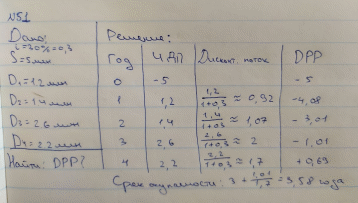 №51
Дано: Решение:
i=30%=0,3
S=5 млн Год ЧДП Дисконт. поток DPP
D₁=1,2 млн 0 -5 -5
D₂=1,4 млн 1 1,2 1,2/1+0,3 ≈ 0,92 -4,08
D₃=2,6 млн 2 1,4 1,4/1+0,3 ≈ 1,07 -3,01
D₄=2,2 млн 3 2,6 2,6/1+0,3 ≈ 2 -1,01
Найти: DPP? 4 2,2 2,2/1+0,3 ≈ 1,7 +0,69
Срок окупаемости: 3 + 1,01/1,7 = 3,58 года